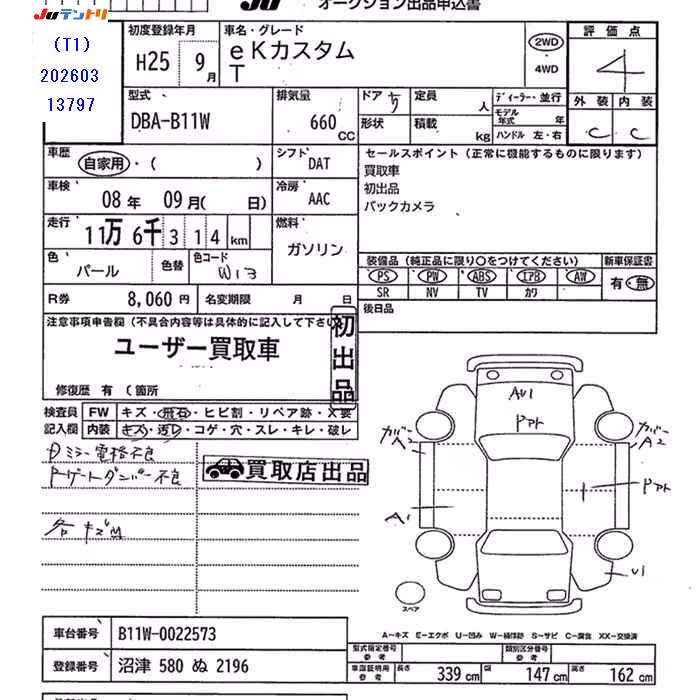 JUテントリ
JU オークション出品申込書
(T1)
202603
13797
初度登録年月
H25 9月
車名・グレード
eKカスタム
T
2WD
4WD
評価点
4
型式
DBA-B11W
排気量
660 CC
ドア 5
形状
定員 人
積載 kg
ディーラー・並行
モデル年式 年
ハンドル 左・右
外装 内装
C C
車歴
自家用・( )
シフト
DAT
セールスポイント(正常に機能するものに限ります)
買取車
初出品
バックカメラ
車検
08年 09月( 日)
冷房
AAC
走行
11万 6千 3 1 4 km
燃料
ガソリン
色
パール
色替
色コード
W13
装備品(純正品に限り○をつけてください)
PS PW ABS エアB AW
SR NV TV カワ
新車保証書
有・無
R券 8,060円
名変期限 月 日
後日品
注意事項申告欄(不具合内容等は具体的に記入して下さい)
ユーザー買取車
初出品
修復歴 有 ( 箇所
検査員
記入欄
FW キズ・飛石・ヒビ割・リペア跡・X要
内装 キズ・汚レ・コゲ・穴・スレ・キレ・破レ
ミラー電格不良
ダンパー不良
買取店出品
各キズM
AU1
ドアト
カバー
A2
カバー
A2
ドアト
A1
U1
スペア
A-キズ E-エクボ U-凹み W-補修跡 S-サビ C-腐食 XX-交換済
車台番号 B11W-0022573
型式指定番号
参考
類別区分番号
参考
登録番号 沼津 580 ぬ 2196
車庫証明用
参考
長さ 339 cm
幅 147 cm
高さ 162 cm